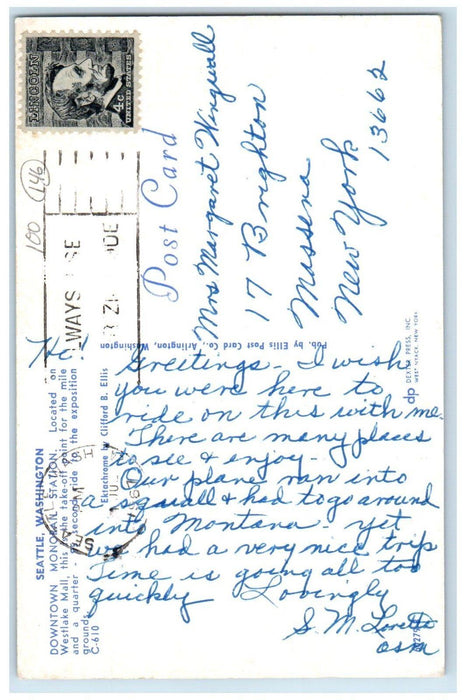 LINCOLN
4c
UNITED STATES
100
146
ALWAYS USE
ZIP CODE
SEATTLE
Post Card
Mrs Margaret Wingwall
17 Brighton
Massena
New York
13662
Hi!
Greetings - I wish
you were here to
ride on this with me.
There are many places
to see & enjoy -
Our plane ran into
a squall & had to go around
into Montana - yet
we had a very nice trip
Time is going all too
quickly Lovingly
S. M. Loretto
osm
SEATTLE, WASHINGTON
DOWNTOWN MONORAIL STATION. Located on
Westlake Mall, this is the take-off point for the mile
and a quarter - 95 second ride to the exposition
grounds.
C-610
Ektachrome by Clifford B. Ellis
Pub. by Ellis Post Card Co., Arlington, Washington
dp
DEXTER PRESS, INC.
WEST NYACK, NEW YORK